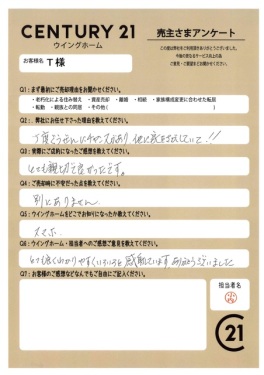 CENTURY 21
ウイングホーム
売主さまアンケート
この度は弊社をご利用頂きありがとうございました。
今後の更なるサービス向上の為
ご意見・ご感想をお聞かせください。
お客様名
T様
Q1:まず最初にご売却理由をお聞かせください。
・老朽化による住み替え ・資産売却 ・離婚 ・相続 ・家族構成変更に合わせた転居
・転勤 ・親族との同居 ・その他( )
Q2:弊社にお任せ下さった理由を教えてください。
Q3:実際にご成約になったご感想を教えてください。
とても親切で良かったです。
Q4:ご売却時に不安だった点を教えてください。
別にありません。
Q5:ウイングホームをどこでお知りになったか教えてください。
スマホ
Q6:ウイングホーム・担当者へのご感想ご意見を教えてください。
とても良くわかりやすく 感謝しています。ありがとうございました
Q7:お客様のご感想などなんでもご自由にご記入ください。
担当者名
C21